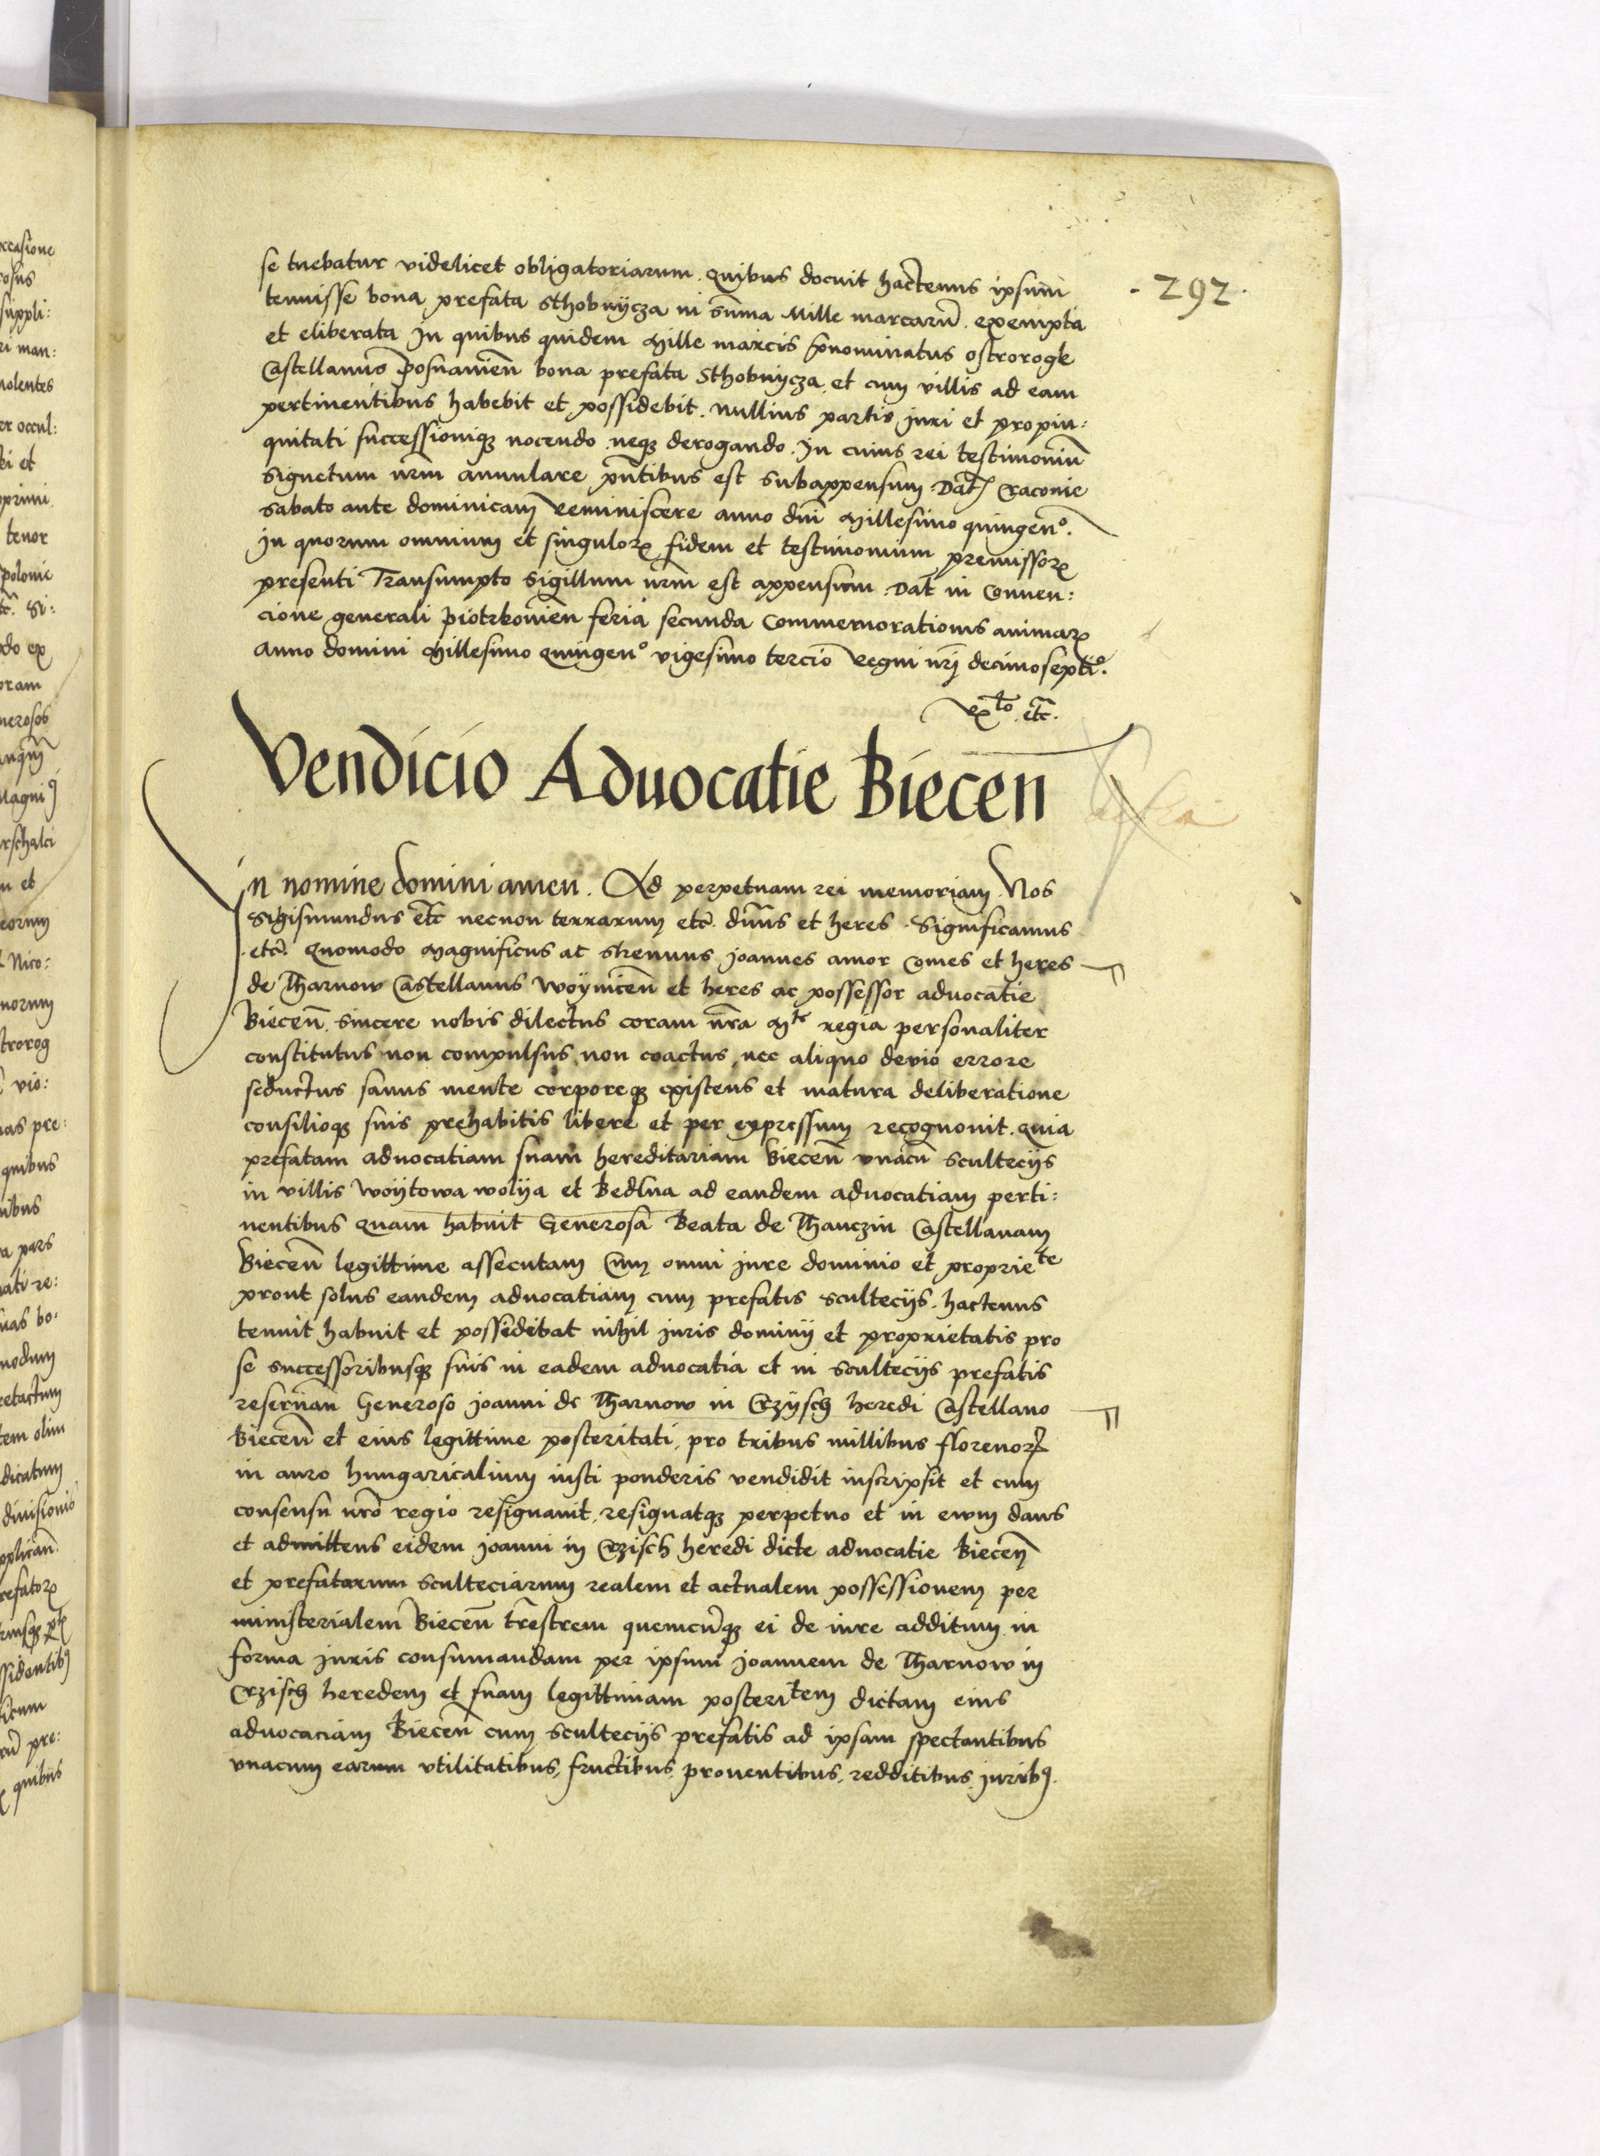 se tuebatur videlicet obligatoriarum quibus docuit hactenus ipsum
· 292 ·
tenuisse bona prefata Sthobnycza in suma Mille marcarũ exempta
et eliberata In quibus quidem Mille marcis p̃nominatus ostrorogk
Castellanus Posnanieñ bona prefata Sthobnycza et cum villis ad eam
pertinentibus habebit et possidebit. nullius partis juri et propin:
quitati successionique nocendo neque derogando. In cuius rei testimoniũ
Signetum nr̃m annulare p̃ntibus est subappensum. Dat̃ Cracovie
sabato ante dominicam Reminiscere anno dñi Millesimo quingenᵒ.
In quorum omnium et singuloꝝ fidem et testimonium premissoꝝ
presenti Transumpto sigillum nr̃m est appensum. Dat̃ in Conven:
cione generali Piotrkovieñ feria secunda Commemorationis animaꝝ
anno domini Millesimo Quingenᵒ vigesimo tercio Regni nr̃j decimoseptiᵒ.
etc̃.
Vendicio Aduocatie Biecen
In nomine domini amen. Ad perpetuam rei memoriam Nos
Sigismundus etc̃ necnon terrarum etc̃ dñus et heres. Significamus
etc̃. Quomodo Magnificus ac strenuus Joannes amor Comes et heres
de Tharnow Castellanus woyniceñ et heres ac possessor advocatie
Bieceñ sincere nobis dilectus coram nr̃a Mᵗᵉ regia personaliter
constitutus non compulsus non coactus nec aliquo devio errore
seductus sanus mente corporeque existens et matura deliberatione
consilioque suis prehabitis libere et per expressum recognovit. quia
prefatam advocatiam suam hereditariam Bieceñ unacũ scultecijs
in villis woytowa wolya et Bedlna ad eandem advocatiam perti:
nentibus quam habuit Generosa Beata de Thanczin Castellanam
Bieceñ legittime assecutam Cum omni jure dominio et proprieᵗᵉ
prout solus eandem advocatiam cum prefatis scultecijs hactenus
tenuit habuit et possedebat nihil juris dominij et proprietatis pro
se successoribusque suis in eadem advocatia et in scultecijs prefatis
reservan̄ Generoso joanni de Tharnow in Crzysch heredi Castellano
Bieceñ et eius legittime posteritati, pro tribus millibus florenoꝝ
in auro hungaricalium iusti ponderis vendidit inscripsit et cum
consensu nr̃o regio resignavit, resignatque perpetuo et in evum dans
et admittens eidem joanni in Crzisch heredi dicte advocatie Bieceñ
et prefatarum sculteciarum realem et actualem possessionem per
ministerialem Bieceñ tr̃estrem quemcũque ei de iure additum in
forma juris consumandam per ipsum joannem de Tharnow in
Crzisch heredem et suam legittimam posteriᵗem dictam eius
advocaciam Bieceñ cum scultecijs prefatis ad ipsam spectantibus
unacum earum utilitatibus, fructibus, proventibus, redditibus, juribꝰ.